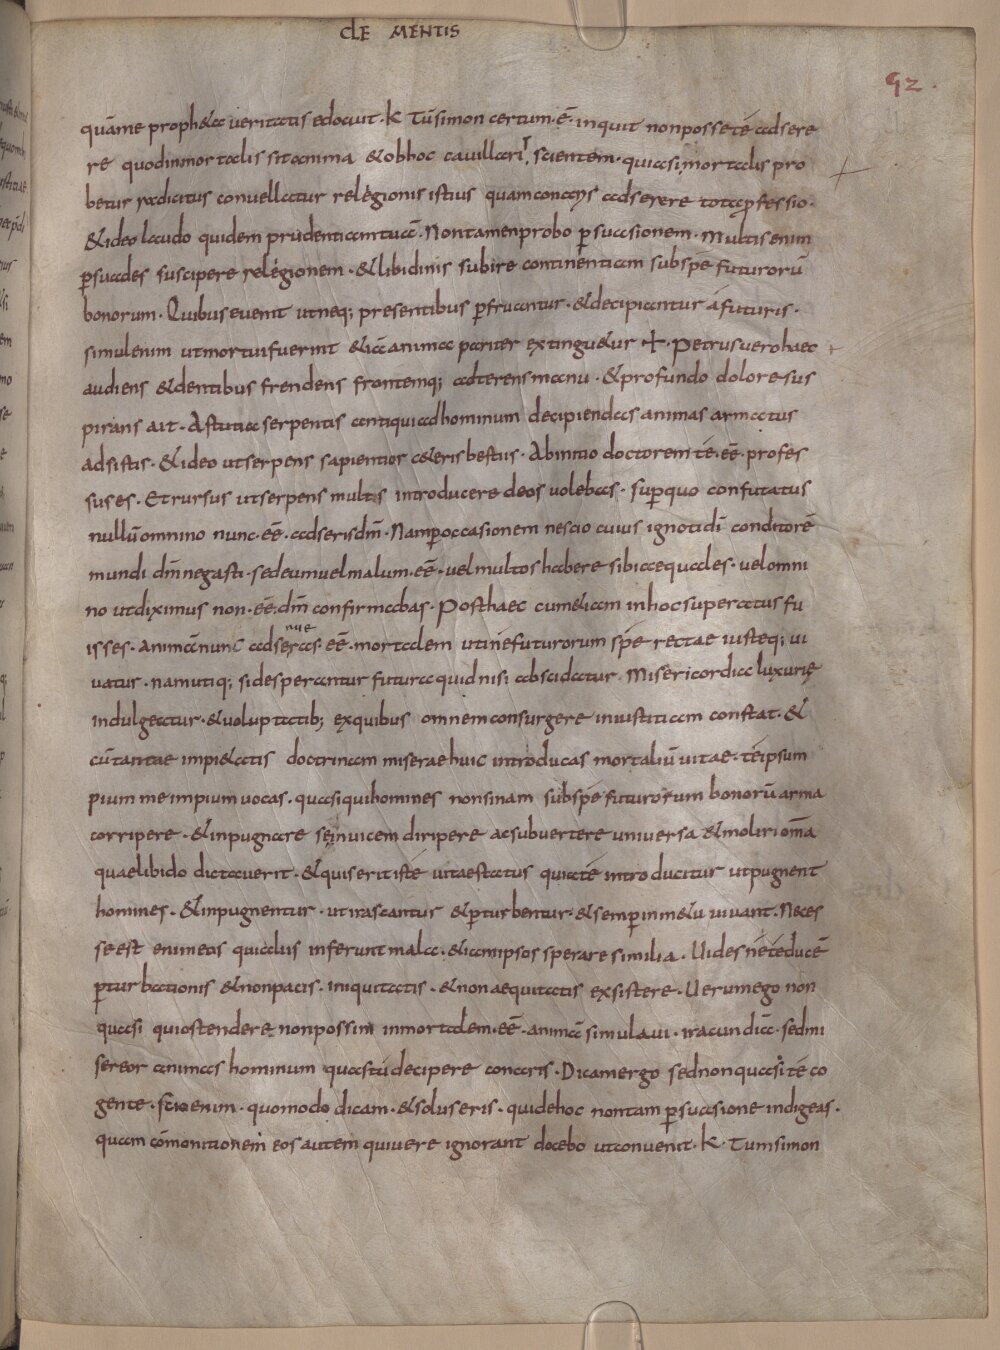 CLEMENTIS
92.
quáme prophetae ueritatis edocuit· K Tū simon certum·ē· inquit non posse té adsere
re quod inmortalis sit anima et ob hoc cauillari, scientem· quia si mortalis pro
betur radicitus conuelletur relegionis istius quam conaris adserere tota ꝑfessio·
et ideo laudo quidem prudentiam tuā· Non tamen probo ꝑsuasionem· Multis enim
ꝑsuades suscipere relegionem· et libidinis subire continentiam sub spe futurorū
bonorum· Quibus euenit ut neq; presentibus ꝑfruantur· et decipiantur á futuris·
simul enim ut mortui fuerint etiā anima pariter extinguetur ·Petrus uero haec
audiens et dentibus frendens frontemq; adterens manu· et profundo dolore sus
pirans ait· Astutia serpentis antiqui ad hominum decipiendas animas armatus
adsistis· et ideo ut serpens sapientior ceteris bestiis· Ab initio doctorem té·eē·profes
sus es· Et rursus ut serpens multos introducere deos uolebas· suꝑ quo confutatus
nullū omnino nunc·eē·adseris dm̄· Nam ꝑ occasionem nescio cuius ignoti di̅ conditorē
mundi dm̄ negasti· sed eum uel malum·eē·uel multos habere sibi aequales· uel omni
no ut diximus non·eē·dm̄ confirmabas· Post haec cum etiam in hoc superatus fu
isses· animā nunc adseueras·eē·mortalem ut ine futurorum spe rectae iusteq; ui
uatur· nam utiq; si desperantur futura quid nisi abscidatur Misericordia luxurię
indulgeatur· et uoluptatib; ex quibus omnem consurgere iniustitiam constat· et
cū tantae impietatis doctrinam miserae huic introducas mortaliū uitae· té ipsum
pium me impium uocas· quasi qui homines non sinam sub spe futurorum bonorū arma
corripere· et inpugnare sę inuicem diripere ac subuertere uniuersa et moliri om̄a
quae libido dictauerit· et qui serit iste uitae status qui a té introducitur ut pugnent
homines· et inpugnentur· ut irascantur et ꝑturbentur· et semꝑ in metu uiuant· Neces
se est enim etis qui aliis inferunt mala· etiam ipsos sperare similia· Uides né té ducē
ꝑturbationis et non pacis· iniquitatis· et non aequitatis exsistere· Uerum ego non
quasi qui ostendere non possim inmortalem·eē·animā simulaui· iracundiā· sed mi
sereor animas hominum quas tú decipere conaris· Dicam ergo sed non quasi té co
gente· scio enim· quomodo dicam· et solus eris· qui de hoc non tam ꝑsuasione indigeas·
quam cōmonitionem eos autem qui uere ignorant docebo ut conuenit· K· Tum simon